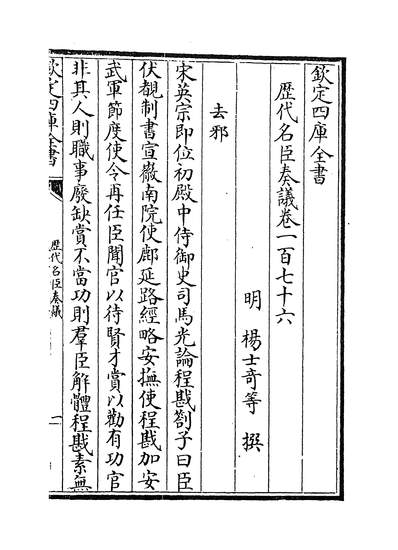 欽定四庫全書
歷代名臣奏議卷一百七十六
明 楊士奇等 撰
去邪
宋英宗即位初殿中侍御史司馬光論程戡劄子曰臣
伏覩制書宣徽南院使鄜延路經略安撫使程戡加安
武軍節度使令再任臣聞官以待賢才賞以勸有功官
非其人則職事廢缺賞不當功則羣臣解體程戡素無
欽定四庫全書
歷代名臣奏議
一